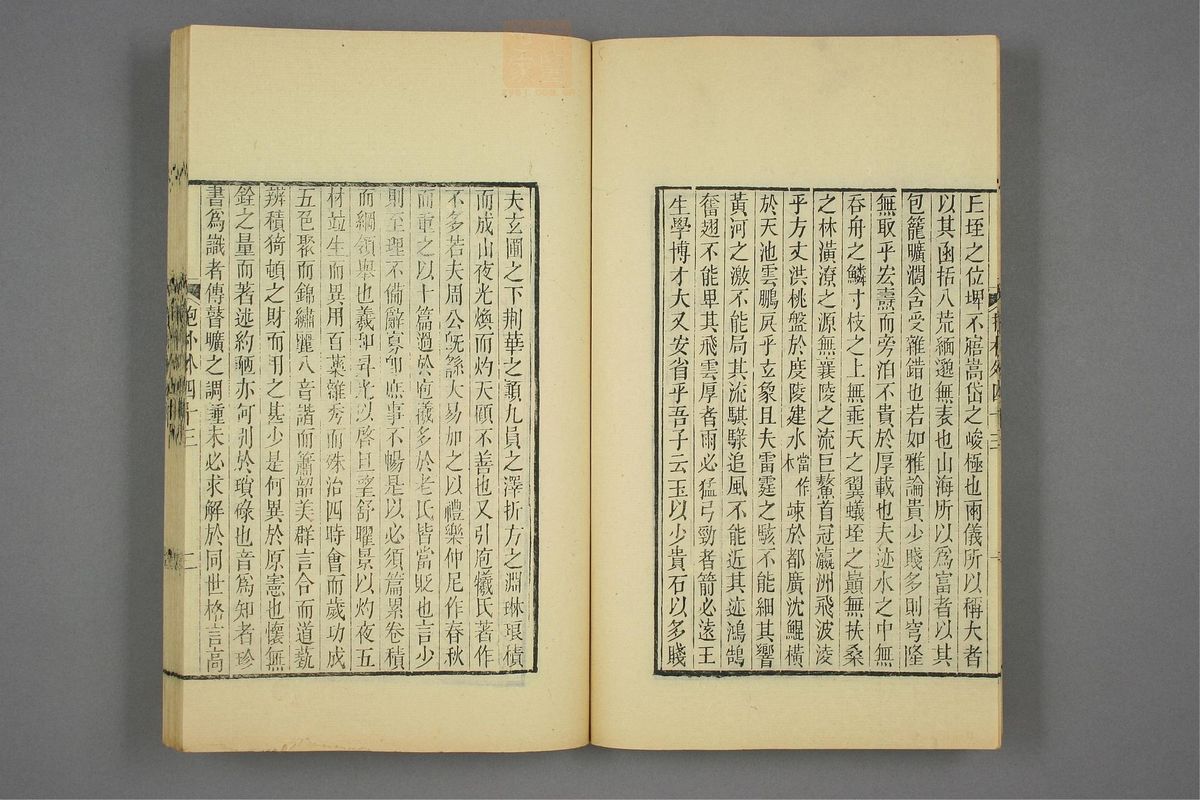 丘垤之位埤不寤嵩岱之峻極也兩儀所以稱大者
以其函括八荒緬邈無表也山海所以為富者以其
包籠曠濶含受雜錯也若如雅論貴少賤多則穹隆
無取乎宏燾而旁泊不貴於厚載也夫迹水之中無
吞舟之鱗寸枝之上無垂天之翼蟻垤之巔無扶桑
之林潢潦之源無襄陵之流巨鰲首冠瀛洲飛波淩
乎方丈洪桃盤於度陵建水當作木竦於都廣沈鯤橫
於天池雲鵬戾乎玄象且夫雷霆之駭不能細其響
黃河之激不能局其流騏驥追風不能近其迹鴻鵠
奮翅不能卑其飛雲厚者雨必猛弓勁者箭必遠王
生學博才大又安省乎吾子云玉以少貴石以多賤
夫玄圃之下荆華之顚九員之澤折方之淵琳琅積
而成山夜光煥而灼天顧不善也又引庖犧氏著作
不多若夫周公旣繇大易加之以禮樂仲尼作春秋
而重之以十篇過於庖犧多於老氏皆當貶也言少
則至理不備辭寡卽庶事不暢是以必須篇累卷積
而綱領舉也羲和昇光以啓旦望舒曜景以灼夜五
材竝生而異用百藥雜秀而殊治四時會而歲功成
五色聚而錦繡麗八音諧而簫韶美群言合而道藝
辨積猗頓之財而用之甚少是何異於原憲也懷無
銓之量而著述約陋亦何別於瑣碌也音為知者珍
書為識者傳瞽曠之調鍾未必求解於同世格言高
抱朴外四十三
二